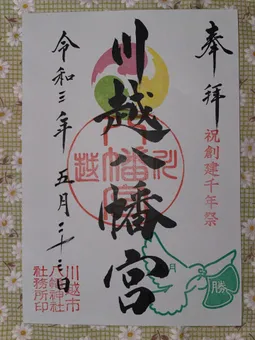 奉拝
祝創建千年祭
川越八幡宮
勝
令和三年五月二十二日
川越市
八幡神社
社務所印